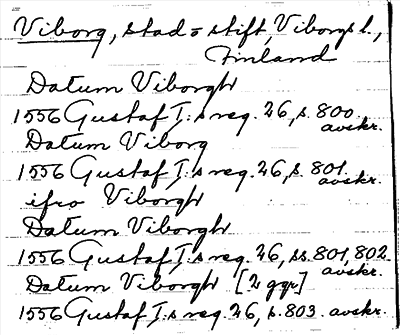 Viborg, stad o stift, Viborgs l.,
Finland
Datum Viborgh
1556 Gustaf I:s reg. 26, s. 800
avskr.
Datum Viborg
1556 Gustaf I:s reg. 26, s. 801
avskr.
ifrå Viborgh
Datum Viborgh
1556 Gustaf I:s reg. 26, ss. 801, 802
avskr.
Datum Viborgh [2 ggr]
1556 Gustaf I:s reg. 26, s. 803. avskr.